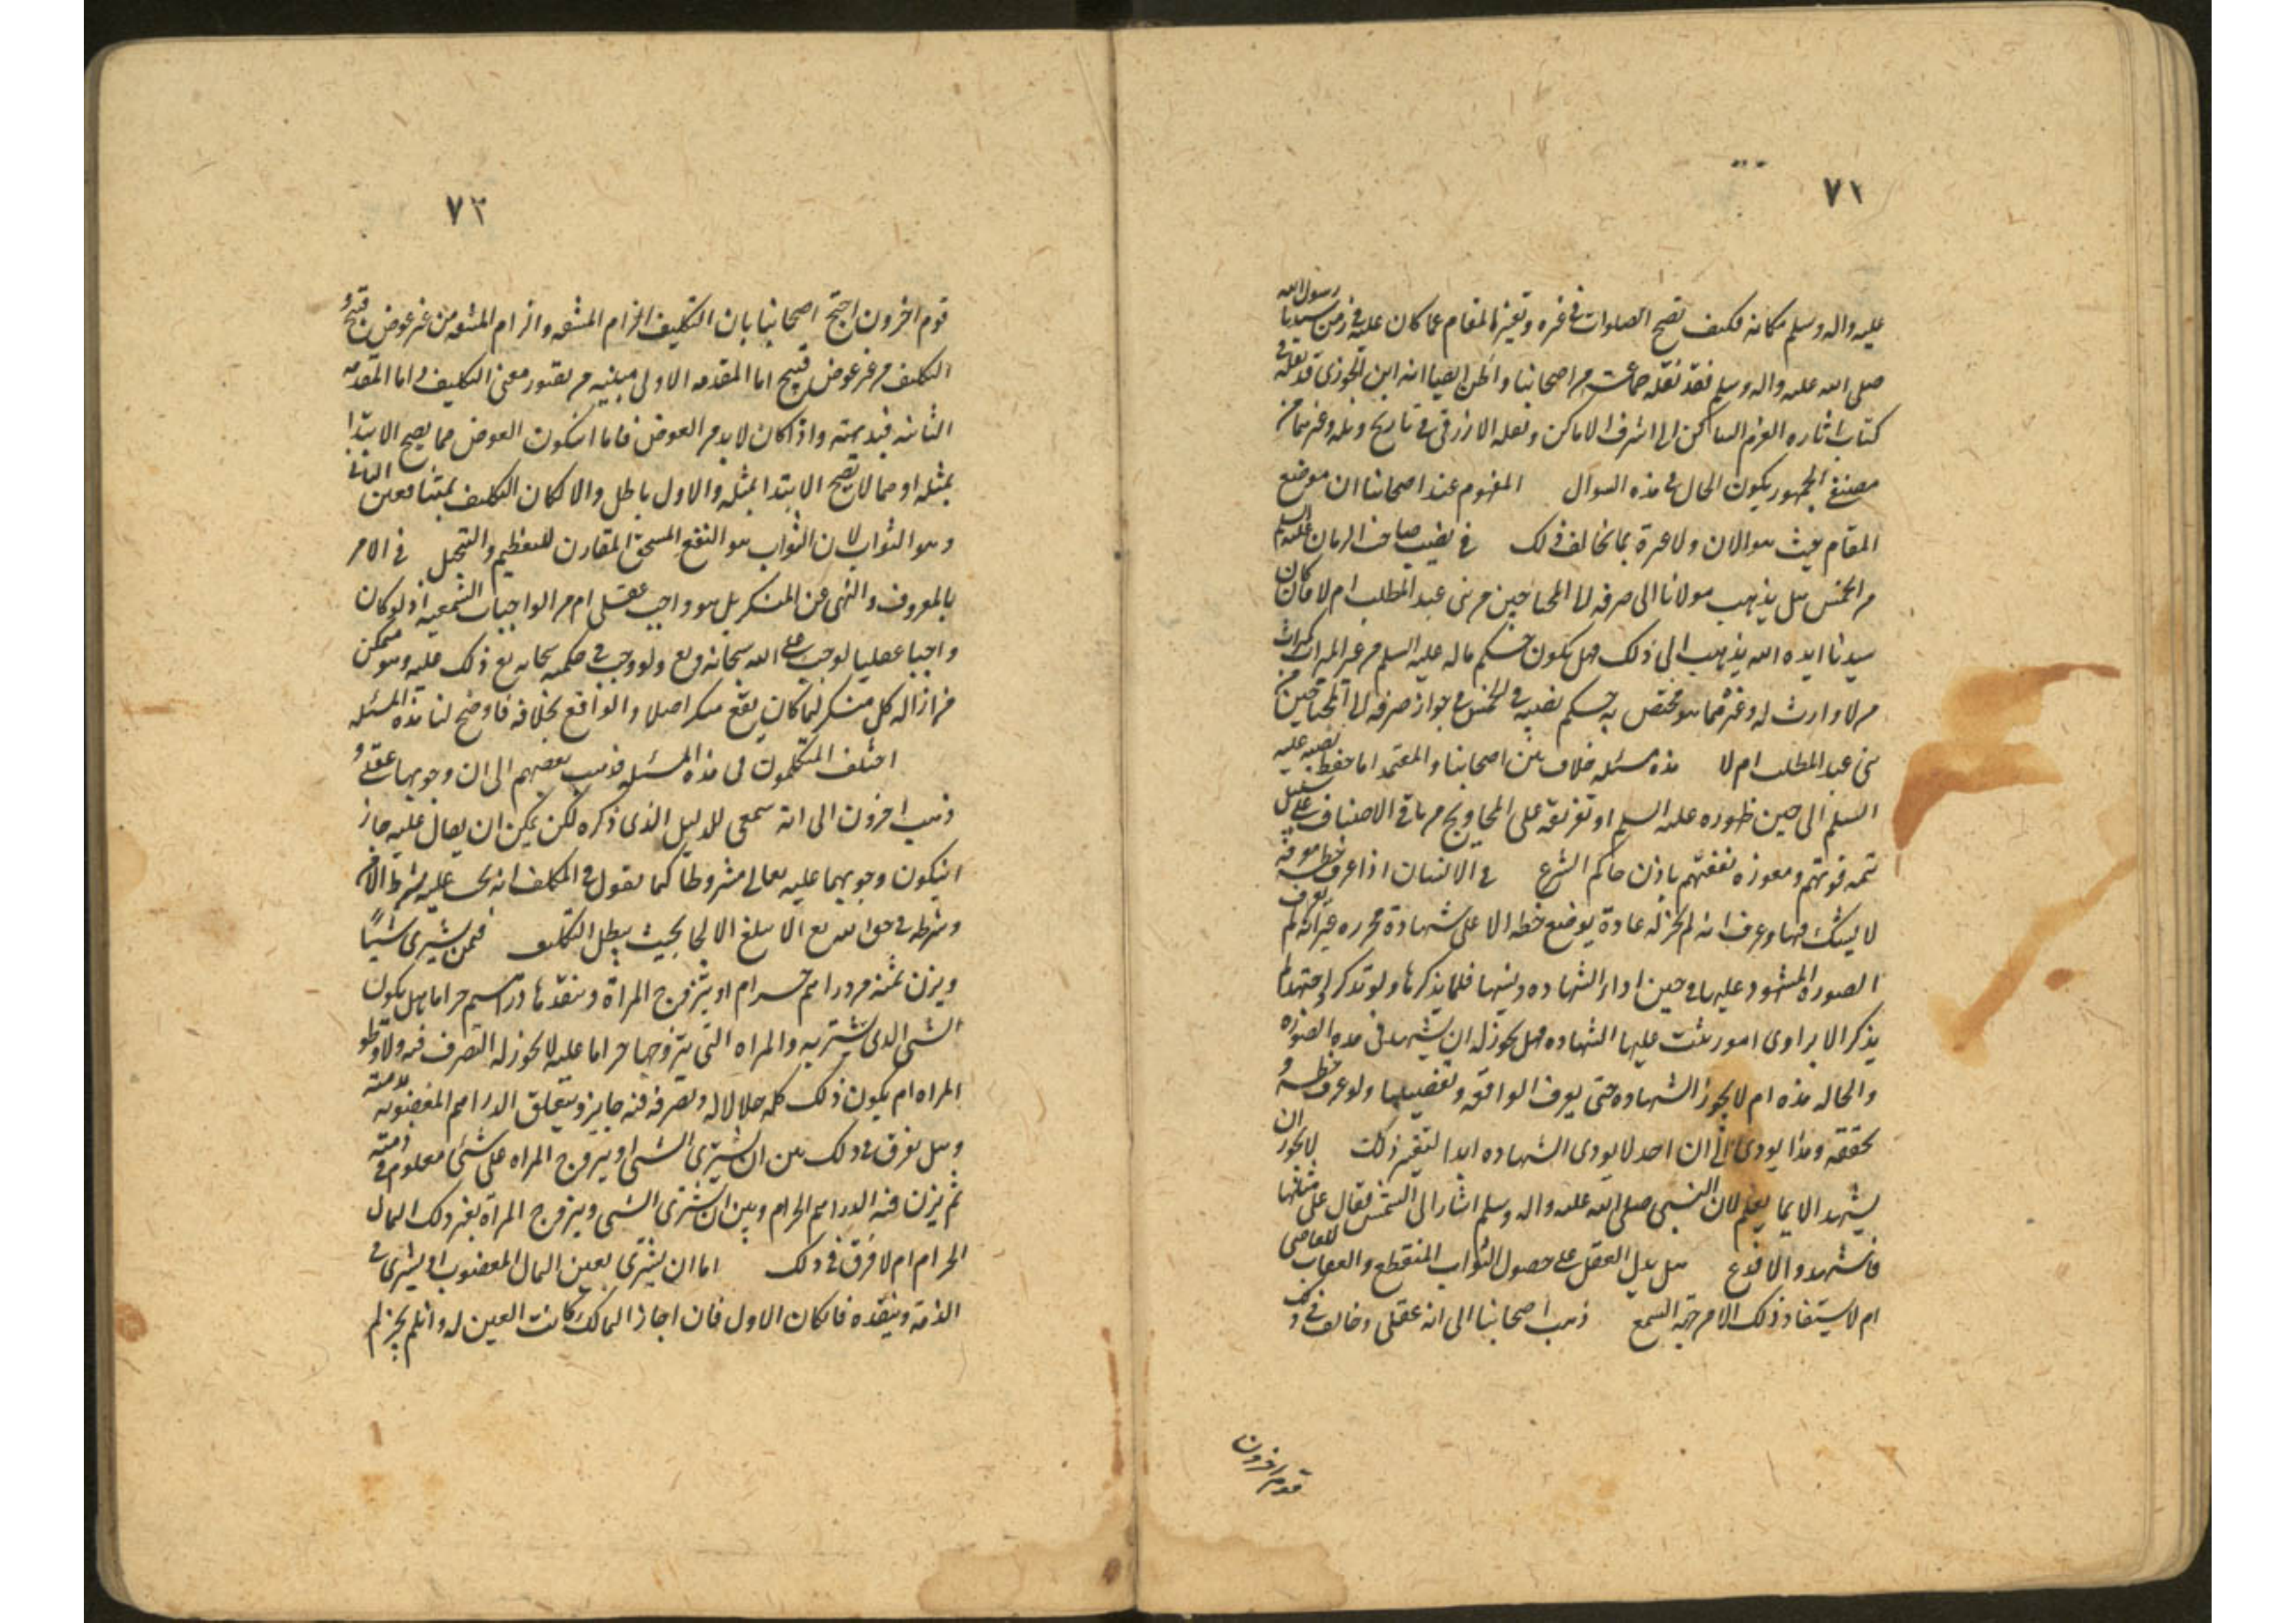 ٧٢
عليه واله وسلم مكانه فكيف تصح الصلوات في غيره وتغيير المقام عما كان عليه في زمن سيدنا رسول الله
صلى الله عليه واله وسلم فقد نقله جماعة من اصحابنا واظن ايضا انه ابن الجوزي قد نقله في
كتاب اثاره العزم الساكن الى اشرف الاماكن ونقله الازرقي في تاريخ وغيرهما من
مصنفي الجمهور يكون الحال في هذه السوال المفهوم عند اصحابنا ان موضع
المقام حيث هو الان ولا عبرة بما يخالف ذلك في نصيب صاحب الزمان عليه السلم
من الخمس هل يذهب مولانا الى صرفه الى المحتاجين من بني عبد المطلب ام لا فان كان
سيدنا ايده الله يذهب الى ذلك فهل يكون حكم ما له عليه السلم من غير الميراث كميراث
من لا وارث له وغيره مما هو مختص به حكم نصيبه في الخمس في جواز صرفه الى المحتاجين من
بني عبد المطلب ام لا هذه مسئله خلاف بين اصحابنا والمعتمد اما حفظ نصيبه عليه
السلم الى حين ظهوره عليه السلم او تفريقه على المحاويج من باقي الاصناف على سبيل
تتمه قوتهم ومعوزه نفقتهم باذن حاكم الشرع في الانسان اذا عرف خطه معرفة
لا يشك فيها وعرف انه لم يجز له عادة يوضع خطه الا على شهادة محرره غير انه لم يعرف
الصوره المشهود عليها في حين اداء الشهاده ونسيها فلما يذكرها ولو تذكر واجتهد لم
يذكر الا براوى امور يثبت عليها الشهاده فهل يجوز له ان يشهد في هذه الصوره
والحاله هذه ام لا يجوز الشهاده حتى يعرف الواقعه وتفصيلها ولو عرف خطه و
تحققه وهذا يودى الى ان احد لا يودى الشهاده ابدا لتغير ذلك لا يجوز ان
يشهد الا بما يعلم لان النبي صلى الله عليه واله وسلم اشار الى الشمس فقال على مثلها
فاشهد والا فدع هل يدل العقل على حصول الثواب المنقطع والعقاب للعاصي
ام لا يستفاد ذلك الا من جهة السمع ذهب اصحابنا الى انه عقلي وخالف في ذلك
قوم اخرون
٧٣
قوم اخرون احتج اصحابنا بان التكليف الزام المشقه والزام المشقه من غير عوض قبيح و
التكليف من غير عوض قبيح اما المقدمه الاولى مبنيه من تصور معنى التكليف واما المقدمه
الثانيه فبديهيه واذا كان لا بد من العوض فاما انيكون العوض مما يصح الابتدا
بمثله او مما لا يصح الابتدا بمثله والاول باطل والا لكان التكليف عبثا فعين الثاني
وهو الثواب لان الثواب هو النفع المستحق المقارن للتعظيم والتبجيل في الامر
بالمعروف والنهى عن المنكر هل هو واجب عقلي ام من الواجبات السمعيه اذ لو كان
واجبا عقليا لوجب على الله سبحانه وتع ولو وجب في حكمه سبحانه تع ذلك عليه وهو ممكن
من ازاله كل منكر لما كان يقع منكر اصلا والواقع بخلافه فاوضح لنا هذه المسئله
اختلف المتكلمون في هذه المسئله فذهب بعضهم الى ان وجوبهما عقلي و
ذهب اخرون الى انه سمعي للدليل الذى ذكره لكن يمكن ان يقال عليه جاز
انيكون وجوبهما عليه تعالى مشروطا كما نقول في المكلف انه يجب عليه بشرط الامن
وشرطه في حق الله تع الا يبلغ الالجا بحيث يبطل التكليف فيمن يشترى شيئا
ويزن ثمنه من دراهم حرام او يتزوج المراة وينقدها دراهم حراما هل يكون
الشى الذى يشتريه والمراه التي يتزوجها حراما عليه لا يجوز له التصرف فيه ولا وطو
المراه ام يكون ذلك كله حلالا له وتصرفه فيه جايز ويتعلق الدراهم المغصوبه بذمته
وهل تفرق في ذلك بين ان يشترى الشى او يتزوج المراه على شئ معلوم في ذمته
ثم يزن فيه الدراهم الحرام وبين ان يشترى الشى ويتزوج المراة بغير ذلك المال
الحرام ام لا فرق في ذلك اما ان يشترى بعين المال المغصوب او يشترى في
الذمة وينقده فانكان الاول فان اجاز المالك كانت العين له وانلم يجز لم